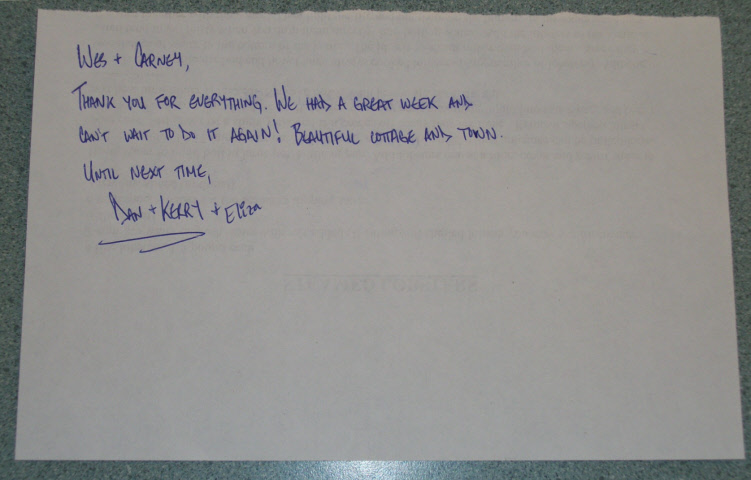 WES + CARNEY,
THANK YOU FOR EVERYTHING. WE HAD A GREAT WEEK AND
CAN'T WAIT TO DO IT AGAIN! BEAUTIFUL COTTAGE AND TOWN.
UNTIL NEXT TIME,
DAN + KERRY + Eliza